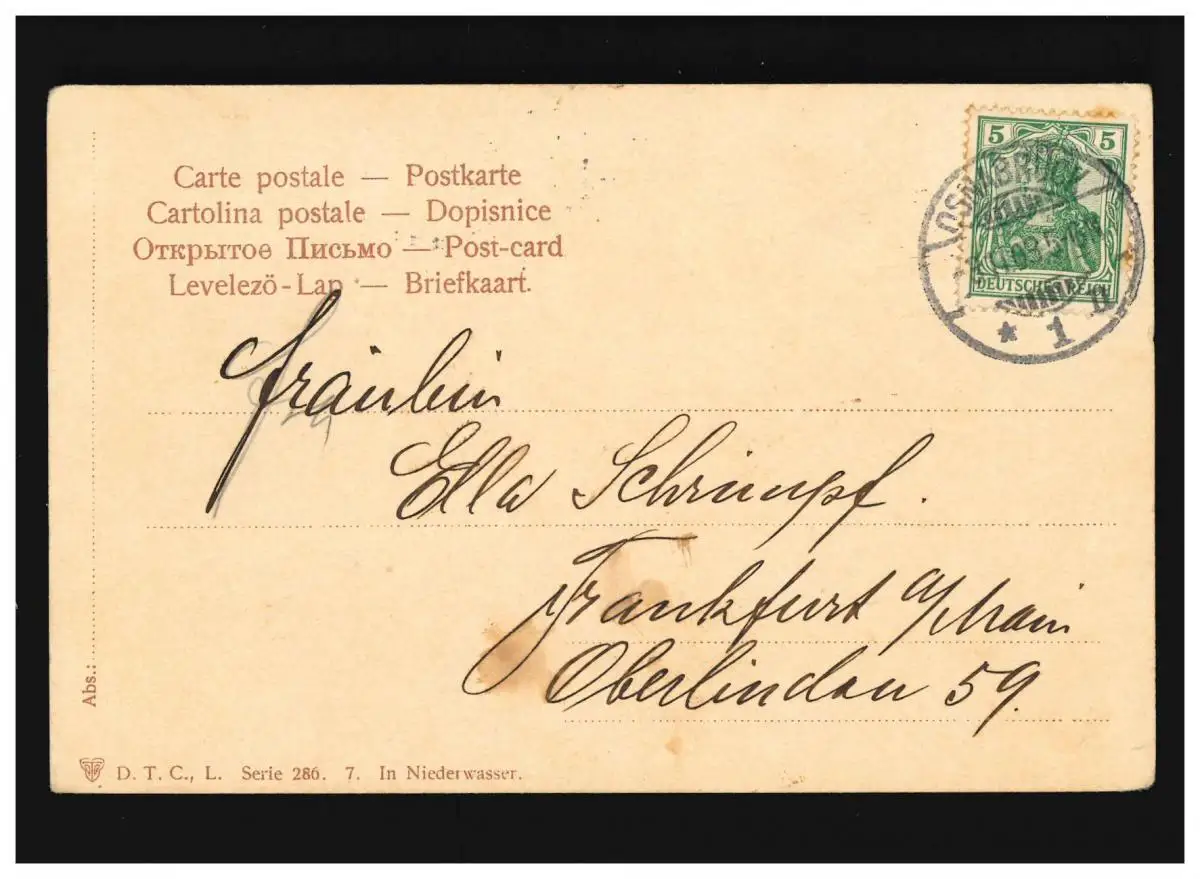 Carte postale — Postkarte
Cartolina postale — Dopisnice
Открытое Письмо — Post-card
Levelező-Lap — Briefkaart.
5 5
OSNABRÜCK
DEUTSCHES REICH
* 1
Fräulein
Ella Schrimpf.
Frankfurt a/Main
Oberlindau 59.
Abs.:
D. T. C., L. Serie 286. 7. In Niederwasser.